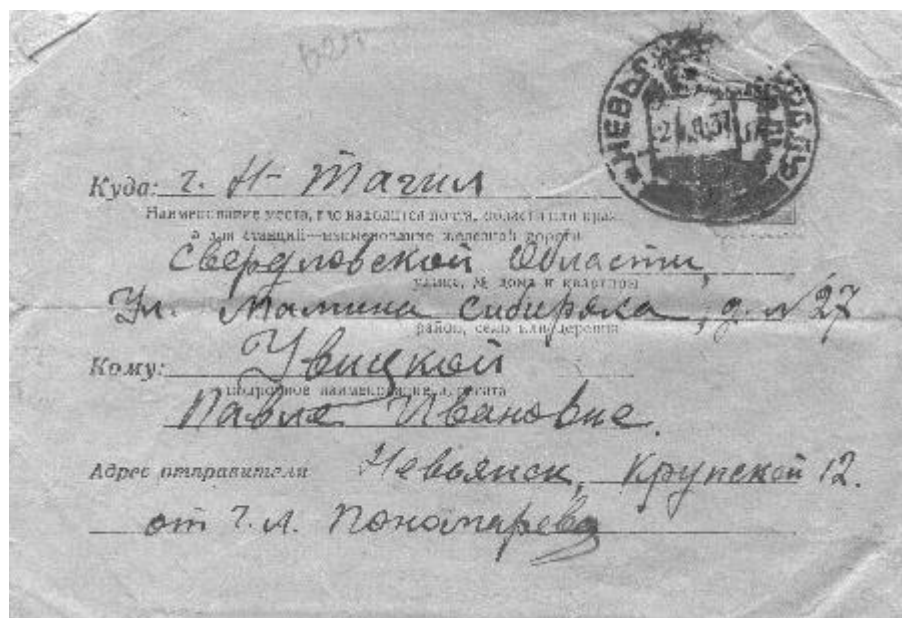 НЕВЬЯНСК УРАЛЬ
2 37
Куда: г. Н-Тагил
Наименование места, где находится почта, области или края
а для станций—наименование железной дороги
Свердловской Области,
улица, № дома и квартиры
Ул. Мамина Сибиряка, д. № 27
район, село или деревня
Кому: Увицкой
подробное наименование адресата
Павле Ивановне.
Адрес отправителя Невьянск, Крупской 12.
от Г. Л. Пономарева